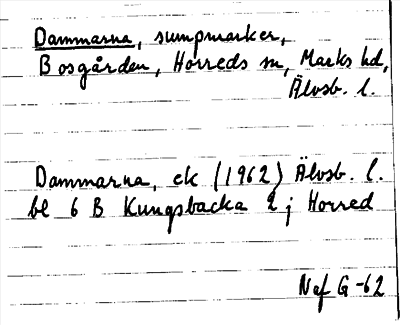 Dammarna, sumpmarker,
Bosgården, Horreds sn, Marks hd,
Älvsb. l.
Dammarna, ek (1962) Älvsb. l.
bl 6 B Kungsbacka 2 j Horred
Naf G-62